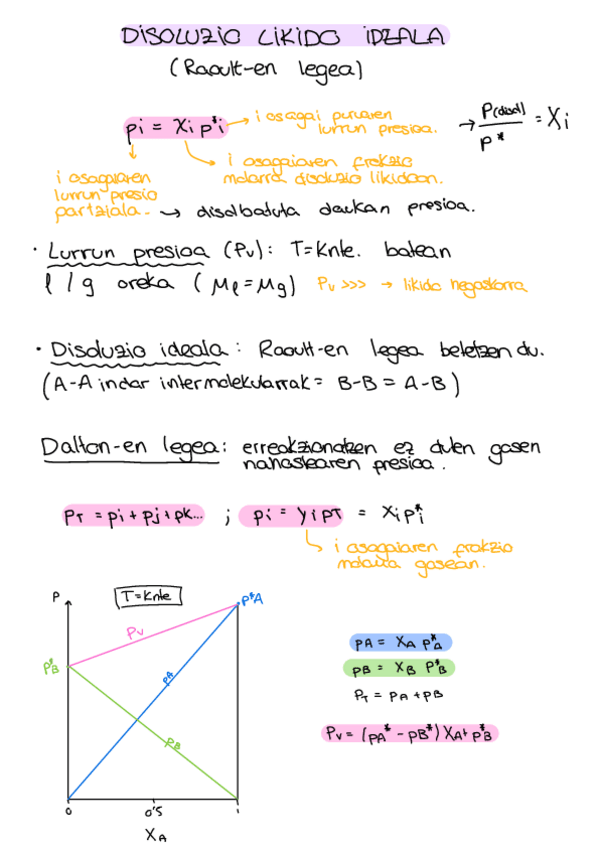 DISOLUZIO LIKIDO IDEALA
(Raoult-en legea)
pi = Xi p*i → i osagai puruaren
lurrun presioa.
→ P(disol) / P* = Xi
i osagaiaren frakzio
molarra disoluzio likidoan.
i osagaiaren
lurrun presio
partziala. → disolbatuta daukan presioa.
· Lurrun presioa (Pv): T=Knte. batean
l / g oreka ( μl = μg ) Pv >>> → likido hegaskorra
· Disoluzio ideala: Raoult-en legea betetzen du.
(A-A indar intermolekularrak = B-B = A-B)
Dalton-en legea: erreakzionatzen ez duten gasen
nahastearen presioa.
PT = pi + pj + pk... ; pi = yi pT = Xi p*i
i osagaiaren frakzio
molarra gasean.
P
T=Knte
P*A
Pv
P*B
PA
PB
0 0'5 1
XA
PA = XA P*A
PB = XB P*B
PT = PA + PB
Pv = (PA* - PB*) XA + P*B